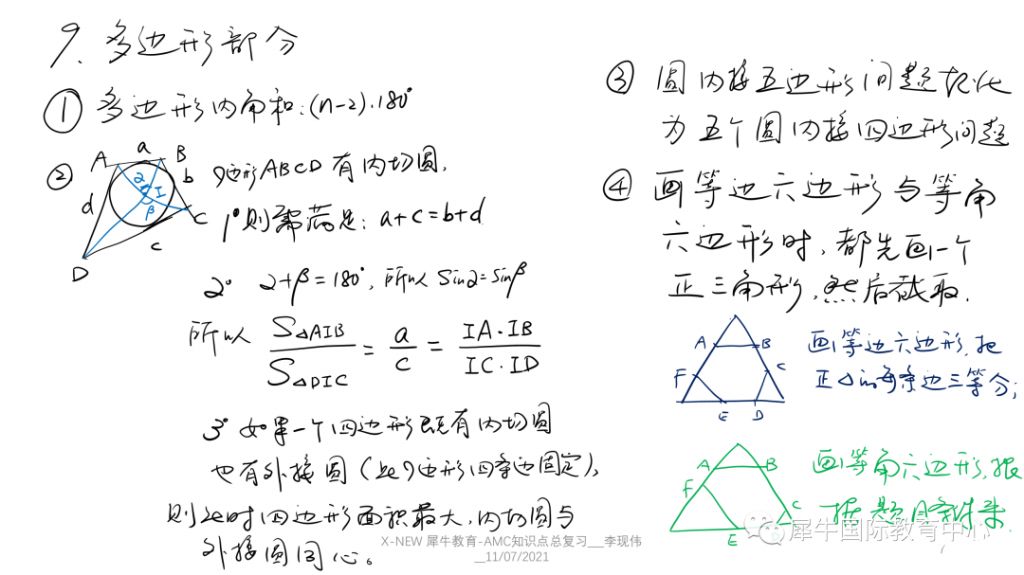 9、多边形部分
① 多边形内角和:(n-2)·180°
② 
A a B
d 2 I b
β
D c C
四边形ABCD有内切圆.
1° 则需满足: a+c=b+d
2° 2+β=180°, 所以 Sin2=Sinβ
所以 S△AIB/S△DIC = a/c = IA·IB/IC·ID
3° 如果一个四边形既有内切圆
也有外接圆(此四边形四条边固定),
则此时四边形面积最大,内切圆与
外接圆同心。
③ 圆内接五边形问题转化
为五个圆内接四边形问题
④ 画等边六边形与等角
六边形时,都先画一个
正三角形,然后截取.
A B
F C
E D
画等边六边形,把
正△的每条边三等分;
A B
F C
E
画等角六边形,根
据题目条件来
X-NEW 犀牛教育-AMC知识点总复习__李现伟
__11/07/2021
犀牛国际教育中心